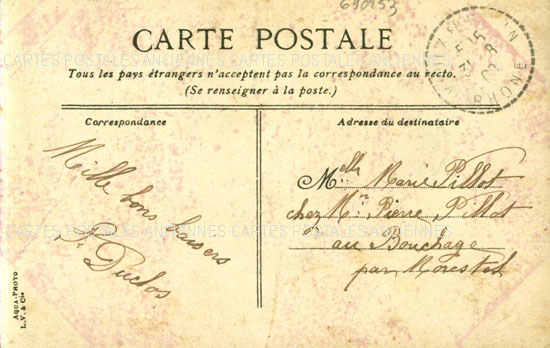 690253
CARTE POSTALE
Tous les pays étrangers n'acceptent pas la correspondance au recto.
(Se renseigner à la poste.)
Correspondance
Adresse du destinataire
Mille bons baisers
Duclos
Melle Marie Pillot
chez Mr Pierre Pillot
au Bouchage
par Morestel
RHONE
AQUA-PHOTO
L.V. & Cie
CARTES POSTALES ANCIENNES CARTES POSTALES ANCIENNES